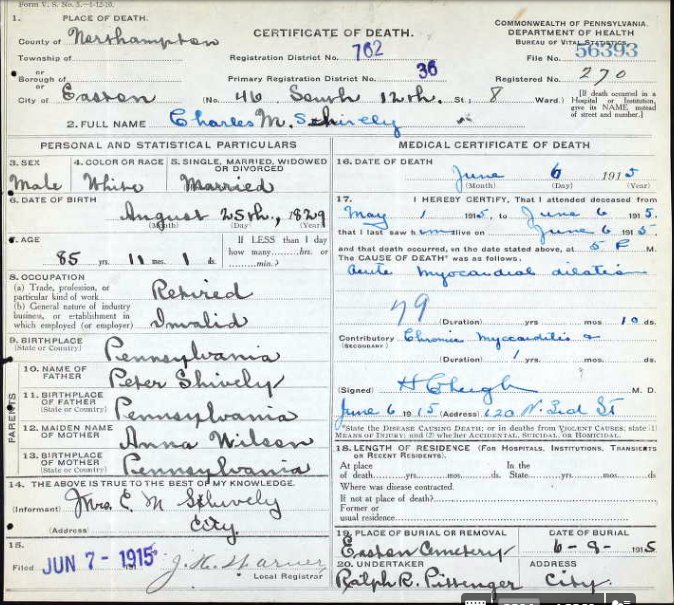 Form V. S. No. 5.
1. PLACE OF DEATH.
County of Northampton
Township of
or
Borough of
or
City of Easton
CERTIFICATE OF DEATH.
Registration District No. 762
Primary Registration District No. 36
(No. 46 South 12th. St; 8 Ward.)
COMMONWEALTH OF PENNSYLVANIA.
DEPARTMENT OF HEALTH
BUREAU OF VITAL STATISTICS.
File No. 56393
Registered No. 270
[If death occurred in a Hospital or Institution, give its NAME instead of street and number.]
2. FULL NAME Charles M. Schively
PERSONAL AND STATISTICAL PARTICULARS
3. SEX
Male
4. COLOR OR RACE
White
5. SINGLE, MARRIED, WIDOWED OR DIVORCED
Married
6. DATE OF BIRTH
August 25th, 1829
(Month) (Day) (Year)
7. AGE
85 yrs. 11 mos. 1 ds.
If LESS than 1 day how many hrs. or min.?
8. OCCUPATION
(a) Trade, profession, or particular kind of work Retired
(b) General nature of industry business, or establishment in which employed (or employer) Invalid
9. BIRTHPLACE
(State or Country) Pennsylvania
PARENTS
10. NAME OF FATHER Peter Shively
11. BIRTHPLACE OF FATHER
(State or Country) Pennsylvania
12. MAIDEN NAME OF MOTHER Anna Wilson
13. BIRTHPLACE OF MOTHER
(State or Country) Pennsylvania
14. THE ABOVE IS TRUE TO THE BEST OF MY KNOWLEDGE.
(Informant) Mrs. E. M Schively
(Address) City.
15.
Filed JUN 7 - 1915 J. H.
Local Registrar
MEDICAL CERTIFICATE OF DEATH
16. DATE OF DEATH
June 6 1915
(Month) (Day) (Year)
17. I HEREBY CERTIFY, That I attended deceased from
May 1 1915, to June 6 1915,
that I last saw him alive on June 6 1915,
and that death occurred, on the date stated above, at 5 P M.
The CAUSE OF DEATH* was as follows.
Acute Myocardial dilation
79
(Duration) yrs. mos. 10 ds.
Contributory Chronic Myocarditis
(SECONDARY)
(Duration) 1 yrs. mos. ds.
(Signed) M. D.
June 6 1915 (Address) 620 N. 3rd St
*State the DISEASE CAUSING DEATH; or in deaths from VIOLENT CAUSES, state (1) MEANS OF INJURY; and (2) whether ACCIDENTAL, SUICIDAL, OR HOMICIDAL.
18. LENGTH OF RESIDENCE (FOR HOSPITALS, INSTITUTIONS, TRANSIENTS OR RECENT RESIDENTS).
At place of death yrs. mos. ds. In the State yrs. mos. ds.
Where was disease contracted.
If not at place of death?
Former or usual residence
19. PLACE OF BURIAL OR REMOVAL
Easton Cemetery
DATE OF BURIAL
6-9- 1915
20. UNDERTAKER
Ralph R. Pittenger
ADDRESS
City.